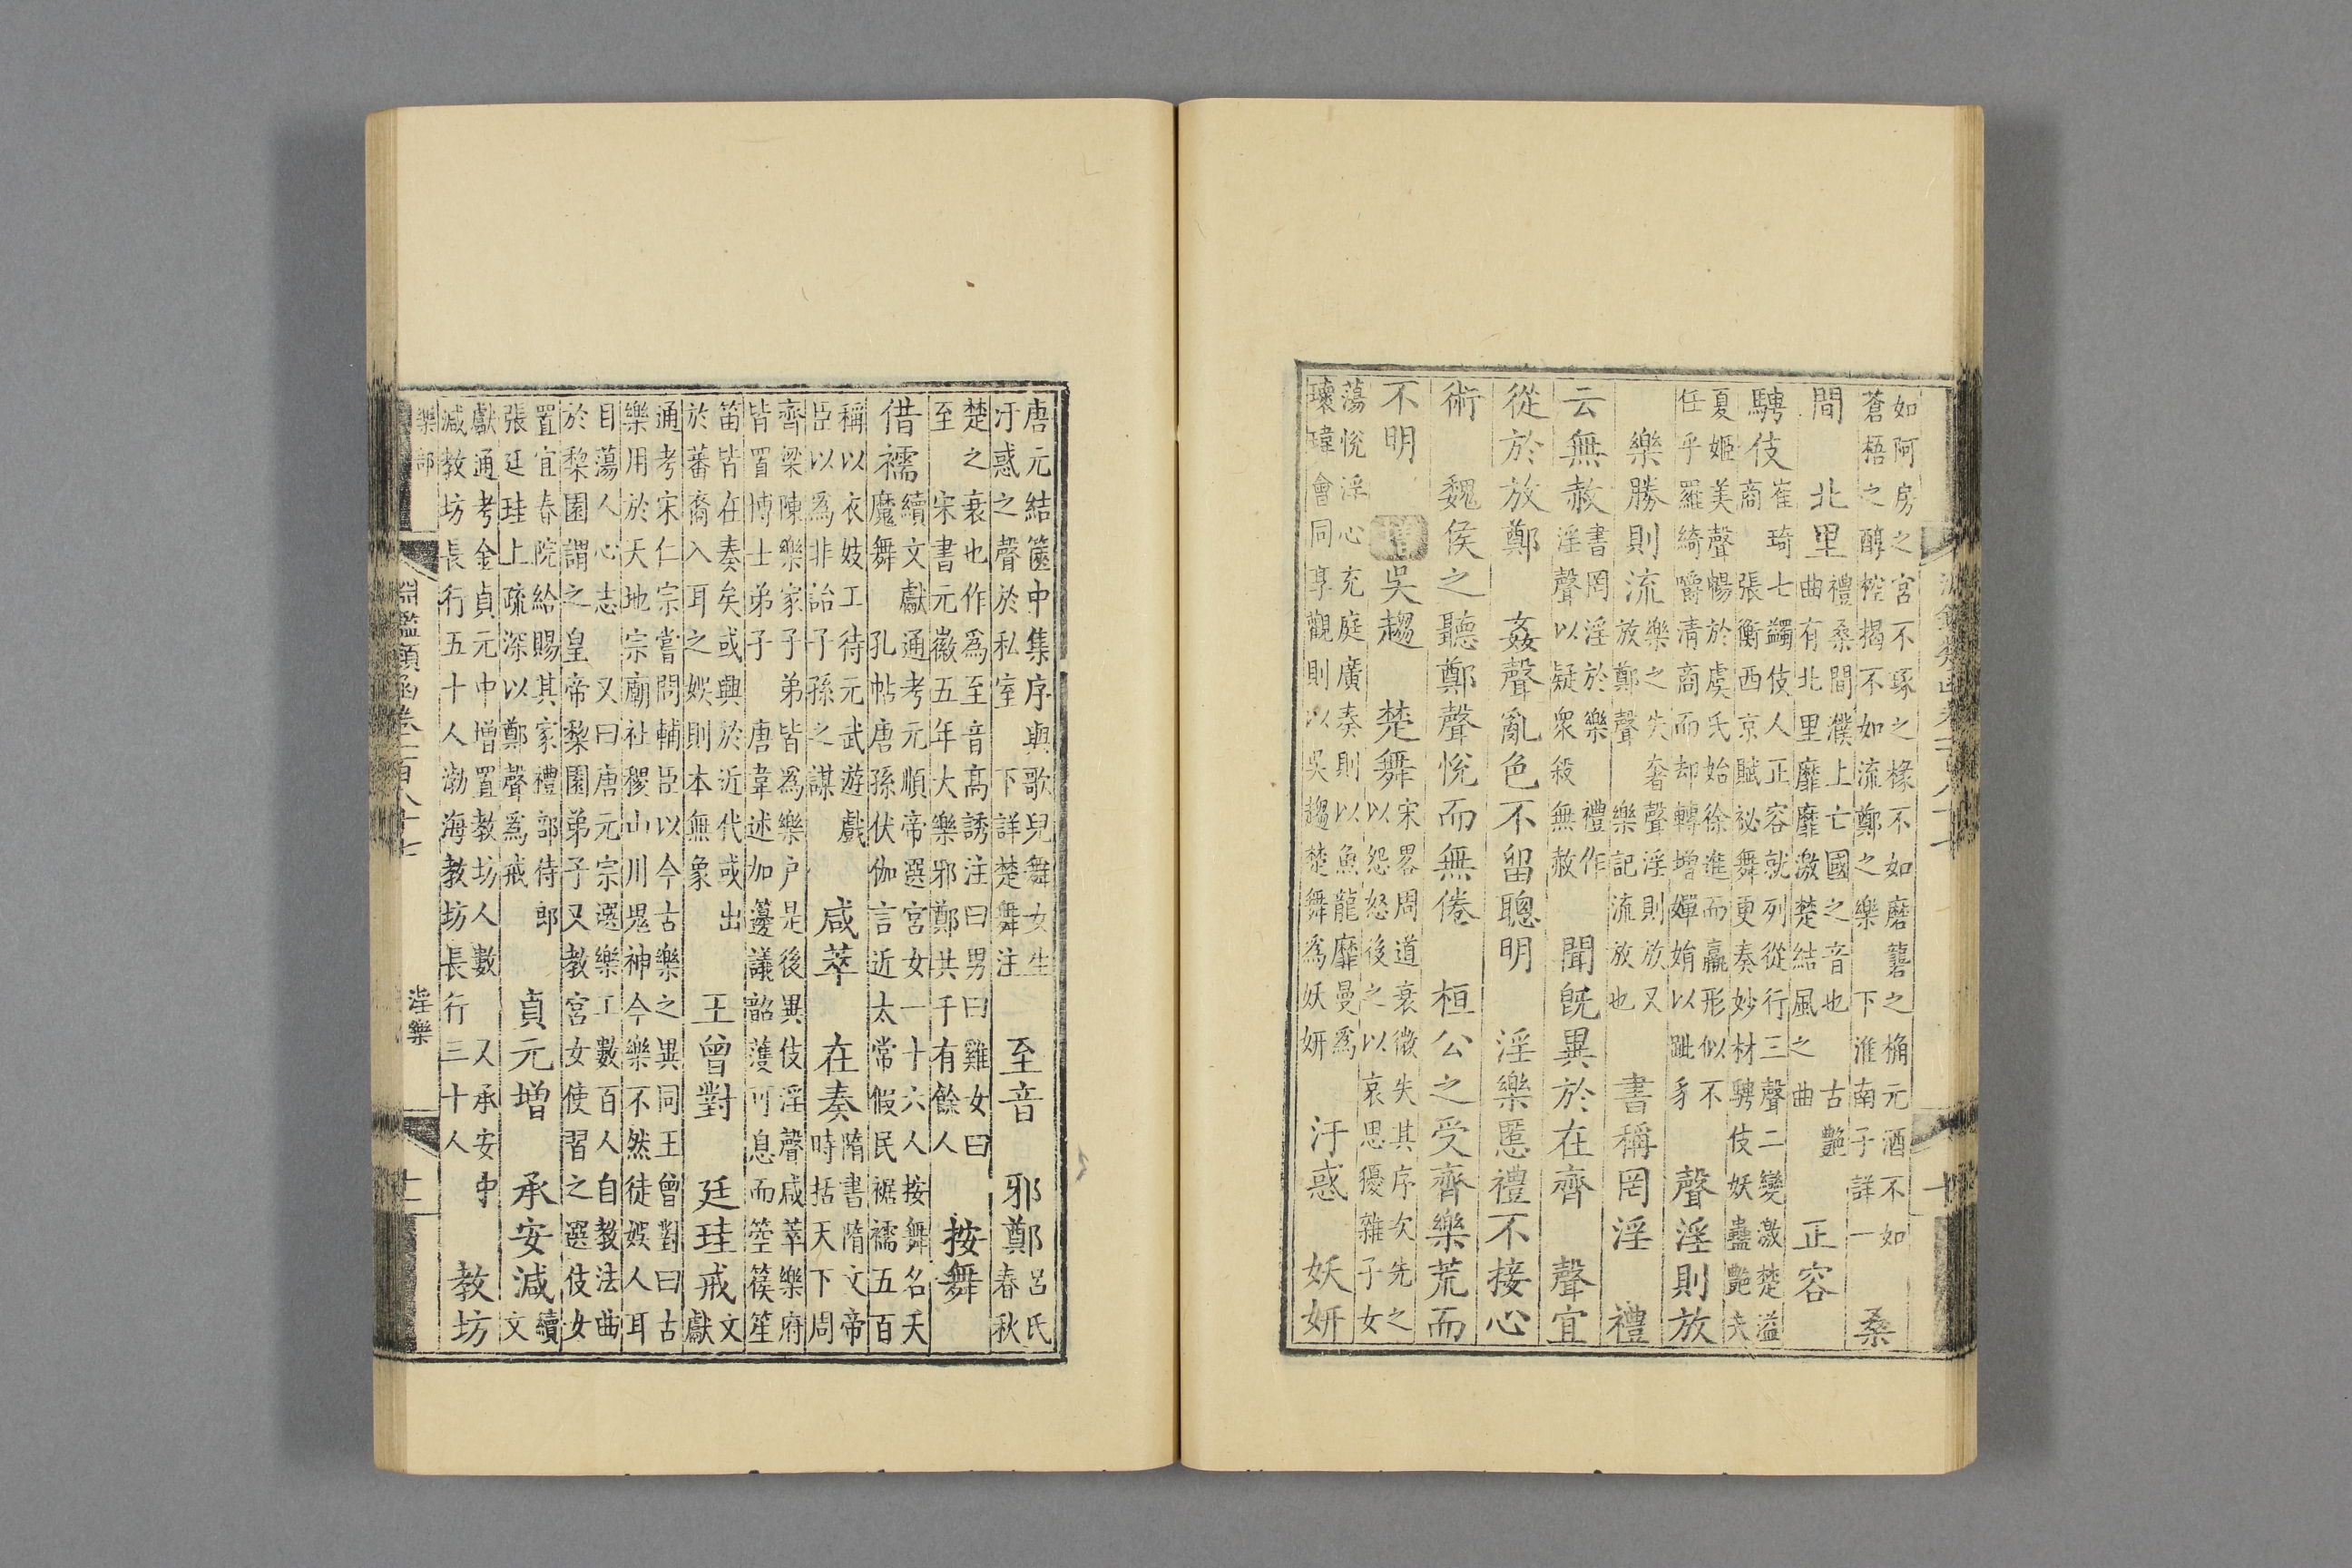 淵鑑類函卷一百八十七 十
如阿房之宮不琢之椽不如磨礱之桷元酒不如蒼梧之醇椌楬不如流鄭之樂 下淮南子詳一 桑
間 北里 禮桑間濮上亡國之音也 古艷曲有北里靡靡激楚結風之曲 正容
騁伎 崔琦七蠲伎人正容就列從行三聲二變激楚溢商 張衡西京賦祕舞更奏妙材騁伎妖蠱艷夫
夏姬美聲暢於虞氏始徐進而羸形似不任乎羅綺嚼清商而却轉增嬋娟以跐豸 聲淫則放
樂勝則流 樂之失奢聲淫則放又放鄭聲 樂記流放也 書稱罔淫 禮
云無赦 書罔淫於樂 禮作淫聲以疑衆殺無赦 聞旣異於在齊 聲宜
從於放鄭 姦聲亂色不留聰明 淫樂慝禮不接心
術 魏侯之聽鄭聲悅而無倦 桓公之受齊樂荒而
不明 增 吳趨 楚舞 宋畧周道衰微失其序次先之以怨怒後之以哀思獶雜子女
蕩悅淫心充庭廣奏則以魚龍靡曼為瓌瑋會同享觀則以吳趨楚舞為妖妍 汙惑 妖妍
唐元結篋中集序與歌兒舞女生汙惑之聲於私室 下詳楚舞注 至音 邪鄭 呂氏春秋
楚之衰也作為至音高誘注曰男曰雞女曰至 宋書元徽五年大樂邪鄭共千有餘人 按舞
借襦 續文獻通考元順帝選宮女一十六人按舞名天魔舞 孔帖唐孫伏伽言近太常假民裾襦五百
稱以衣妓工待元武遊戲臣以為非詒子孫之謀 咸萃 在奏 隋書隋文帝時括天下周
齊梁陳樂家子弟皆為樂户是後異伎淫聲咸萃樂府皆置博士弟子 唐韋述加籩議韶濩可息而箜篌笙
笛皆在奏矣或興於近代或出於蕃裔入耳之娛則本無象 王曾對 廷珪戒 文獻
通考宋仁宗嘗問輔臣以今古樂之異同王曾對曰古樂用於天地宗廟社稷山川鬼神今樂不然徒娛人耳
目蕩人心志 又曰唐元宗選樂工數百人自教法曲於棃園謂之皇帝棃園弟子又教宮女使習之選伎女
置宜春院給賜其家禮部待郎張廷珪上疏深以鄭聲為戒 貞元增 承安減 續文
獻通考金貞元中增置教坊人數 又承安中減教坊長行五十人渤海教坊長行三十人 教坊
樂部 淵鑑類函卷一百八十七 淫樂 十一